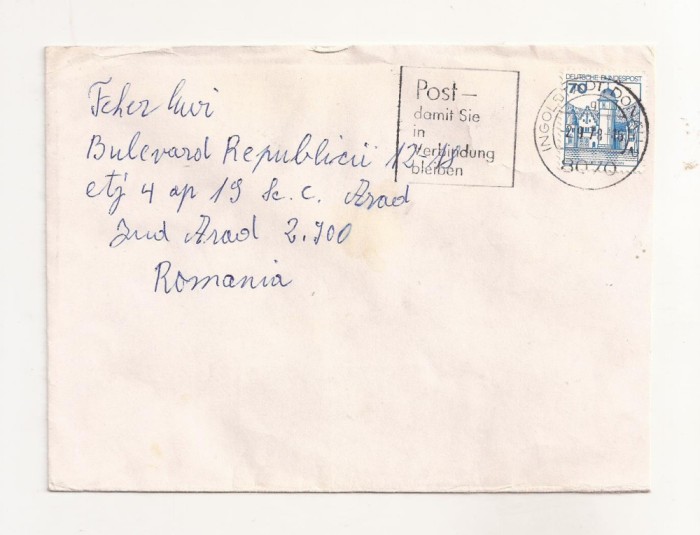 Feher
Bulevard Republicii
etj 4 ap 19 Sc. C. Arad
Jud Arad 2.900
Romania
Post –
damit Sie
in
Verbindung
bleiben
DEUTSCHE BUNDESPOST
70
INGOLSTADT, DONAU
8070